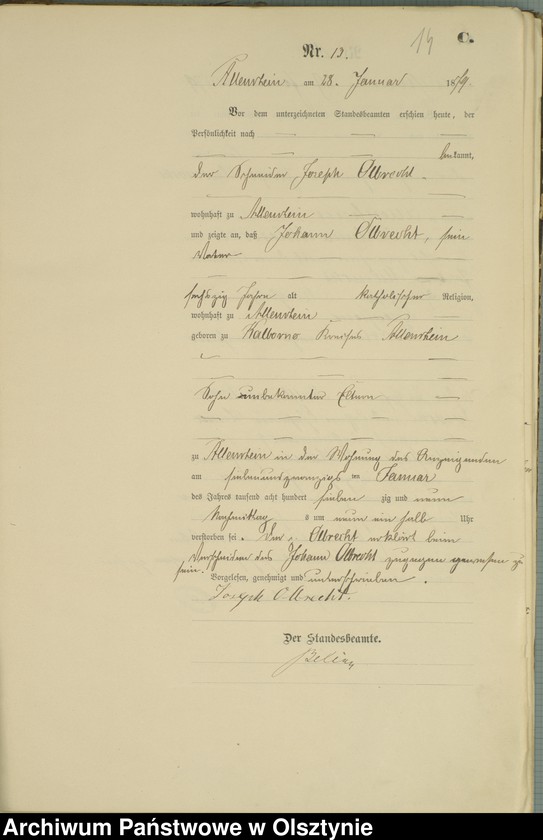 14 C.
Nr. 13.
Allenstein am 28. Januar 1879.
Vor dem unterzeichneten Standesbeamten erschien heute, der
Persönlichkeit nach
bekannt,
der Schneider Joseph Olbrecht
wohnhaft zu Allenstein
und zeigte an, daß Johann Olbrecht, sein
Vater
sechszig Jahre alt katholischer Religion,
wohnhaft zu Allenstein
geboren zu Kalborno Kreises Allenstein
Sohn unbekannter Eltern
zu Allenstein in der Wohnung des Anzeigenden
am siebenundzwanzigsten Januar
des Jahres tausend acht hundert sieben zig und neun
Nachmittags um neun ein halb Uhr
verstorben sei. Der Olbrecht erklärt beim
Verscheiden des Johann Olbrecht zugegen gewesen zu
sein.
Vorgelesen, genehmigt und unterschrieben.
Joseph Olbrecht.
Der Standesbeamte.
Archiwum Państwowe w Olsztynie